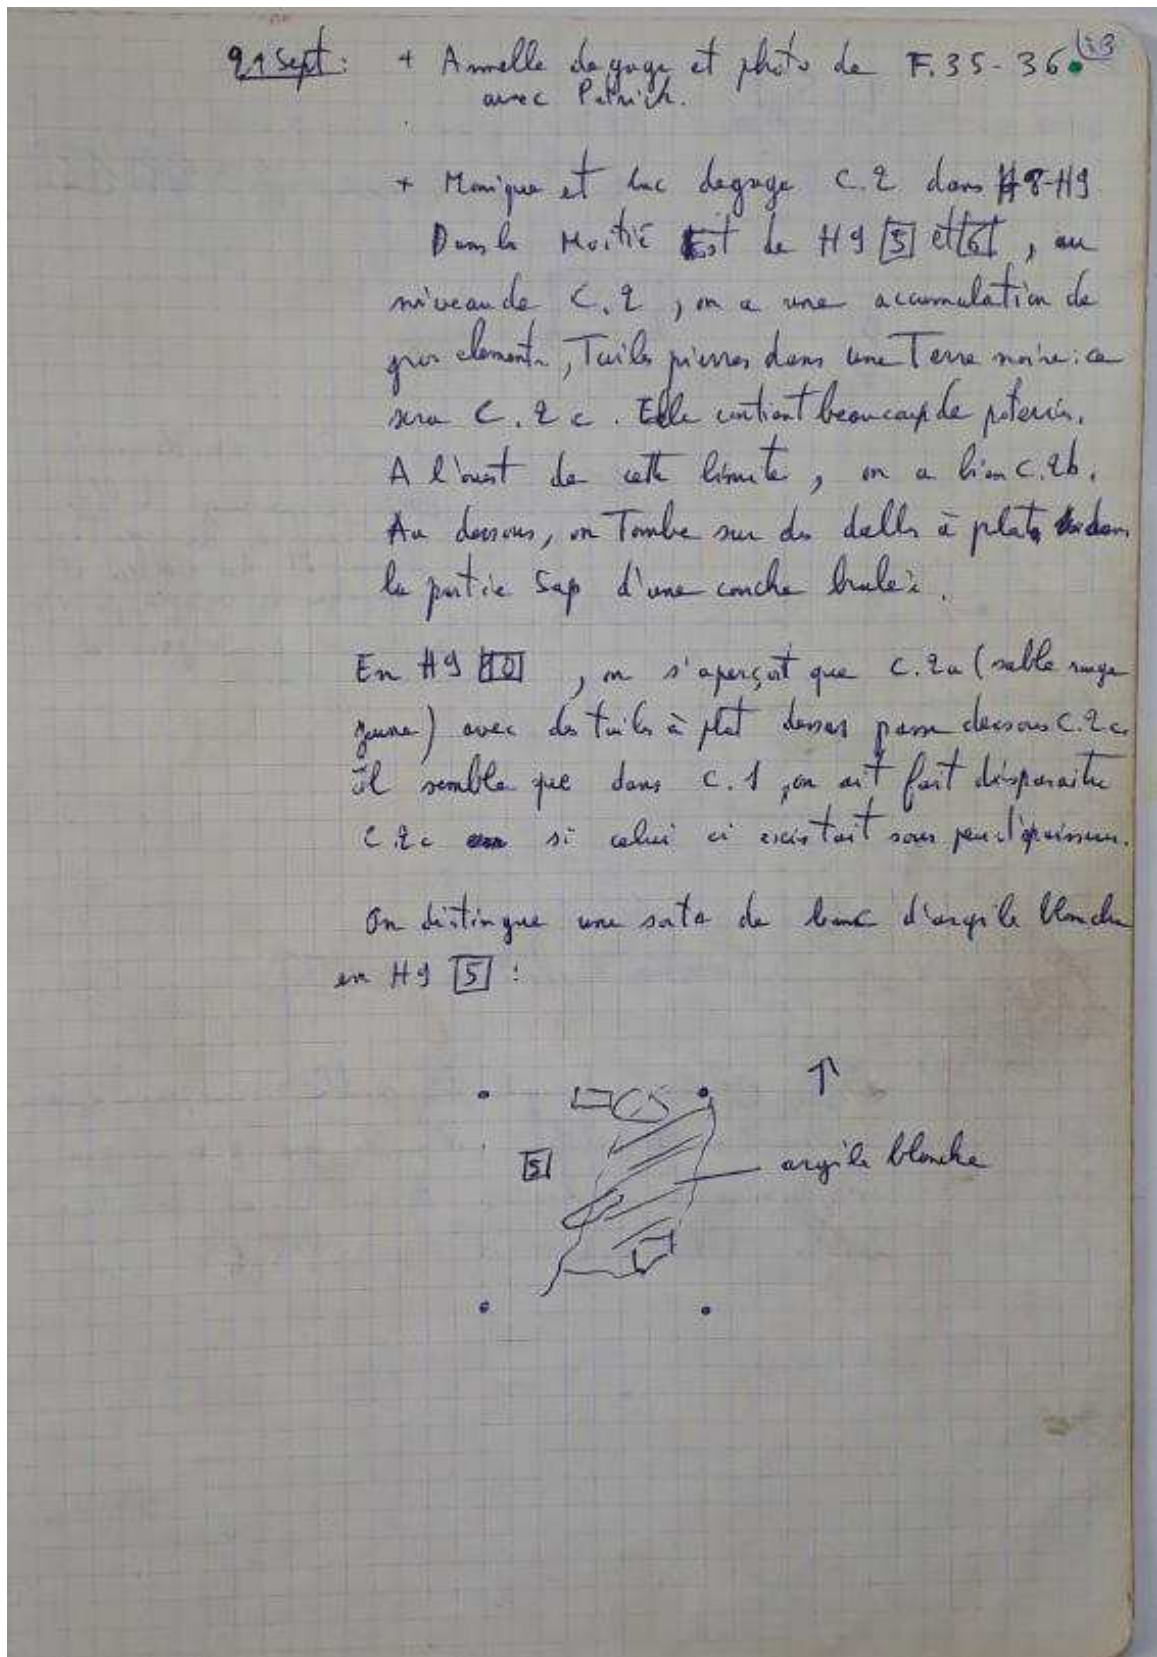 21 Sept : + Annelle degage et photo de F.35-36
avec Patrick.
+ Monique et Luc degage C.2 dans H8-H9
Dans la Moitié Est de H9 5 et 6, au
niveau de C.2, on a une accumulation de
gros elements, Tuiles pierres dans une Terre noire : ce
sera C.2c. Elle contient beaucoup de poteries.
A l'ouest de cette limite, on a bien C.2b.
Au dessous, on Tombe sur des dalles à plat dans
la partie Sup d'une couche brulée.
En H9 10, on s'aperçoit que C.2a (sable rouge
jaune) avec des tuiles à plat dessus passe dessous C.2c.
il semble que dans C.1, on ait fait disparaitre
C.2c si celui ci existait sous peu d'épaisseur.
On distingue une sorte de banc d'argile blanche
en H9 5 :
↑
5
argile blanche